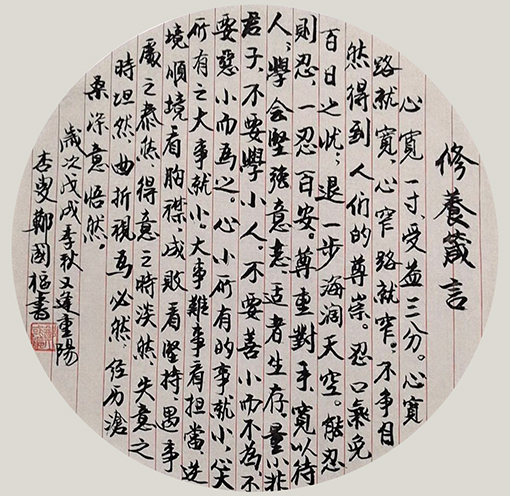 修養箴言
心寬一寸、受益三分。心寬
路就寬心窄路就窄。不争自
然得到人们的尊崇。忍口氣免
百日之忧，退一步海阔天空。能忍
則忍，一忍百安。尊重對手寬以待
人，學会堅强意志适者生存，量小非
君子，不要學小人。不要善小而不為，不
要惡小而為之。心小所有的事就小，心大
所有之大事就小。大事難事看担當，逆
境順境看胸襟，成敗看堅持，遇事
處之泰然得意之時淡然，失意之
時坦然曲折視為必然经历滄
桑深意悟然。
歲次戊戌季秋又逢重陽
杏叟鄭國樞書